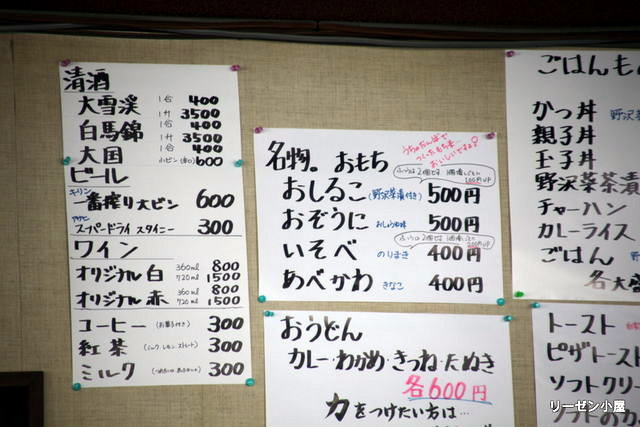 清酒
大雪渓 1合 400
1升 3500
白馬錦 1合 400
1升 3500
大国 1合 400
小ビン 600
ビール
キリン
一番搾り大ビン 600
アサヒ
スーパードライ スタイニー 300
ワイン
オリジナル白 360ml 800
720ml 1500
オリジナル赤 360ml 800
720ml 1500
コーヒー (お菓子付き) 300
紅茶 (ミルク、レモン、ストレート) 300
ミルク 300
名物。おもち
うちのたんぼで
つくったもち米
おいしいですよ!
ふつうは2個です 1個増しごとに
200円UP
おしるこ (野沢菜漬付き) 500円
おぞうに おしょうゆ味 500円
ふつうは2個です 1個増しごとに
200円UP
いそべ のりまき 400円
あべかわ きなこ 400円
おうどん
カレー・わかめ・きつね・たぬき
各600円
力をつけたい方は…
ごはんもの
かつ丼 野沢菜
親子丼
玉子丼
野沢菜茶漬
チャーハン
カレーライス
ごはん 野
各大盛
トースト
ピザトースト
ソフトクリー
リーゼン小屋